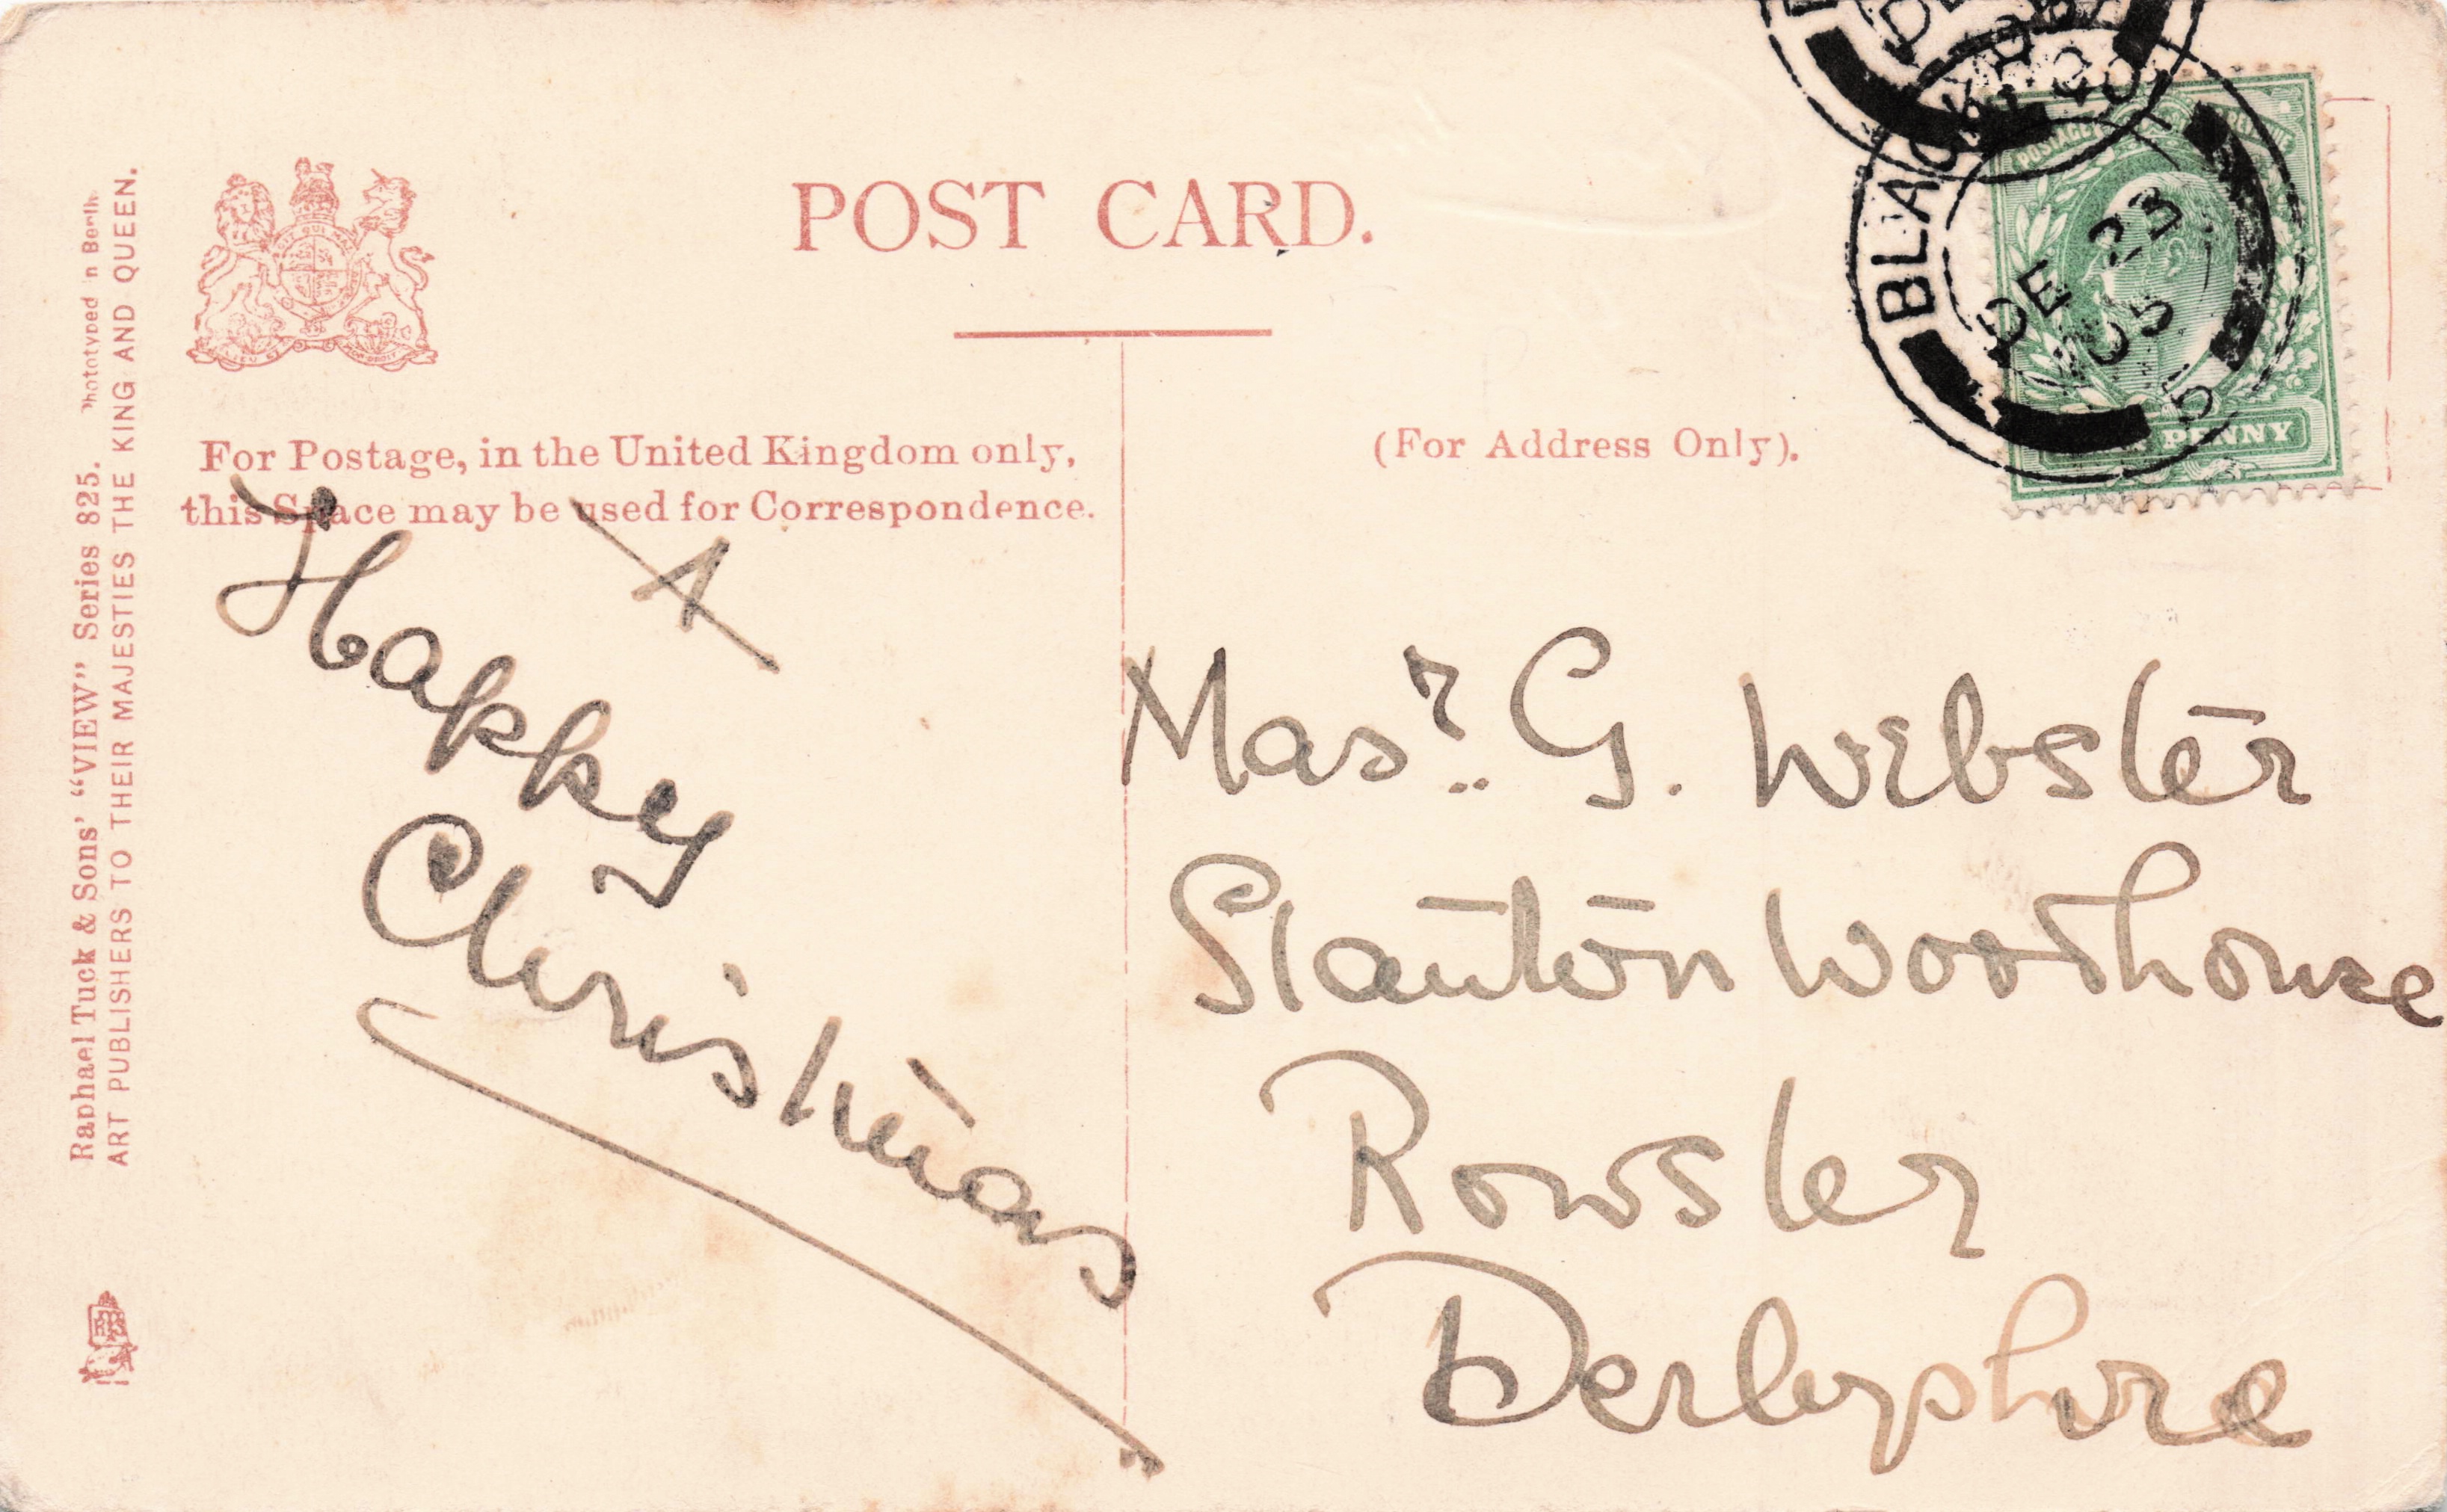 POST CARD.
For Postage, in the United Kingdom only,
this Space may be used for Correspondence.
(For Address Only).
A
Happy
Christmas
Masr. G. Webster
Stanton Woodhouse
Rowsler
Derbyshire
Raphael Tuck & Sons' "VIEW" Series 825. Phototyped in Berlin
ART PUBLISHERS TO THEIR MAJESTIES THE KING AND QUEEN.
DE 23
05
POSTAGE
PENNY